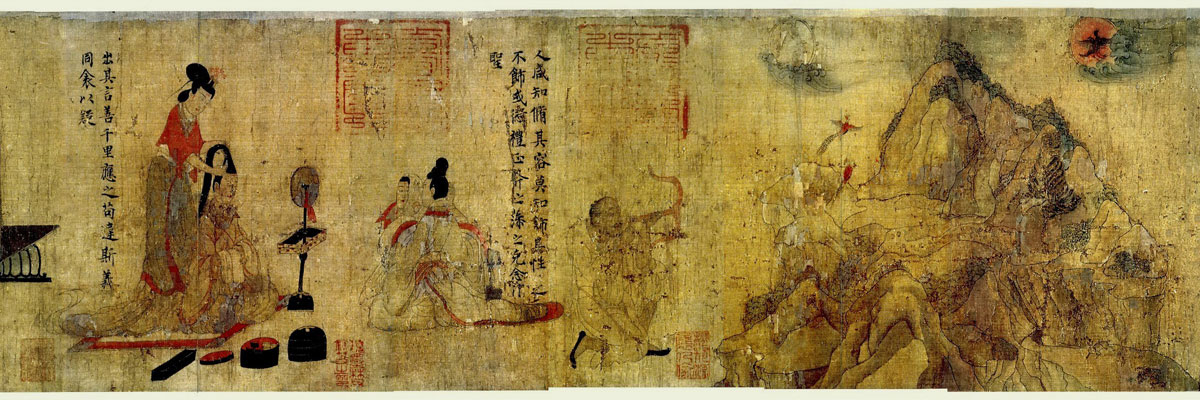 人咸知脩其容莫知飾其性之
不飾或愆禮正斧之藻之克念
聖
出其言善千里應之苟違斯義
同衾以疑